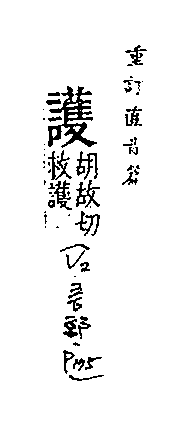 重訂直音篇
護
胡故切
救護
(V2言部.P175)